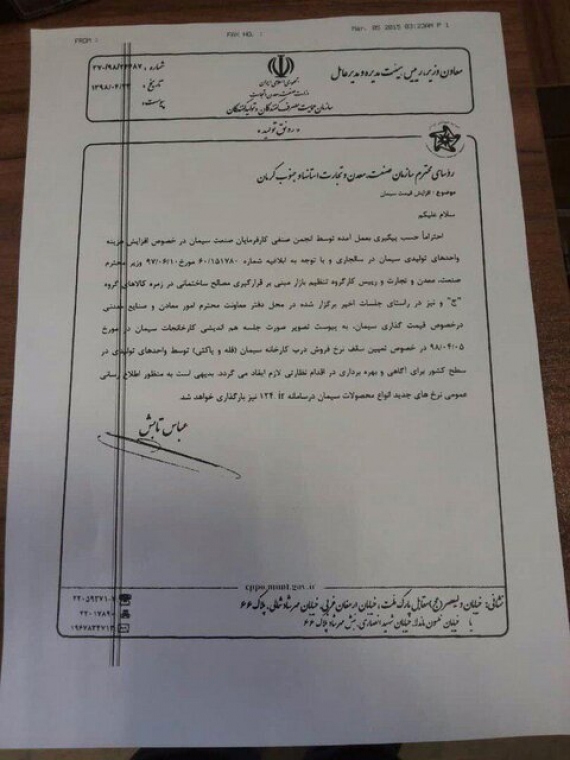 FROM :
FAX NO. :
Mar. 05 2015 03:23AM P 1
معاون وزیر، رییس هیئت مدیره و مدیرعامل
جمهوری اسلامی ایران
وزارت صنعت، معدن و تجارت
سازمان حمایت مصرف کنندگان و تولیدکنندگان
شماره :
تاریخ :
پیوست:
«رونق تولید»
روسای محترم سازمان صنعت، معدن و تجارت استانها و جنوب کرمان
موضوع : افزایش قیمت سیمان
سلام علیکم
احتراماً حسب پیگیری بعمل آمده توسط انجمن صنفی کارفرمایان صنعت سیمان در خصوص افزایش هزینه
واحدهای تولیدی سیمان در سالجاری و با توجه به ابلاغیه شماره ۶۰/۱۵۱۷۸۰ مورخ ۹۷/۰۶/۱۰ وزیر محترم
صنعت، معدن و تجارت و رییس کارگروه تنظیم بازار مبنی بر قرارگیری مصالح ساختمانی در زمره کالاهای گروه
"ج" و نیز در راستای جلسات اخیر برگزار شده در محل دفتر معاونت محترم امور معادن و صنایع معدنی
درخصوص قیمت گذاری سیمان، به پیوست تصویر صورت جلسه هم اندیشی کارخانجات سیمان در مورخ
۹۸/۰۴/۰۵ در خصوص تعیین سقف نرخ فروش درب کارخانه سیمان (فله و پاکتی) توسط واحدهای تولیدی در
سطح کشور برای آگاهی و بهره برداری در اقدام نظارتی لازم ایفاد می گردد. بدیهی است به منظور اطلاع رسانی
عمومی نرخ های جدید انواع محصولات سیمان درسامانه ۱۲۴.ir نیز بارگذاری خواهد شد.
عباس تابش
cppo.mimt.gov.ir
نشانی: خیابان ولیعصر (عج) مقابل پارک ملت، خیابان ارمغان غربی، خیابان مهرشاد شمالی، پلاک ۶۶
یا خیابان نلسون ماندلا، خیابان شهید انصاری، نبش مهرشاد پلاک ۶۶